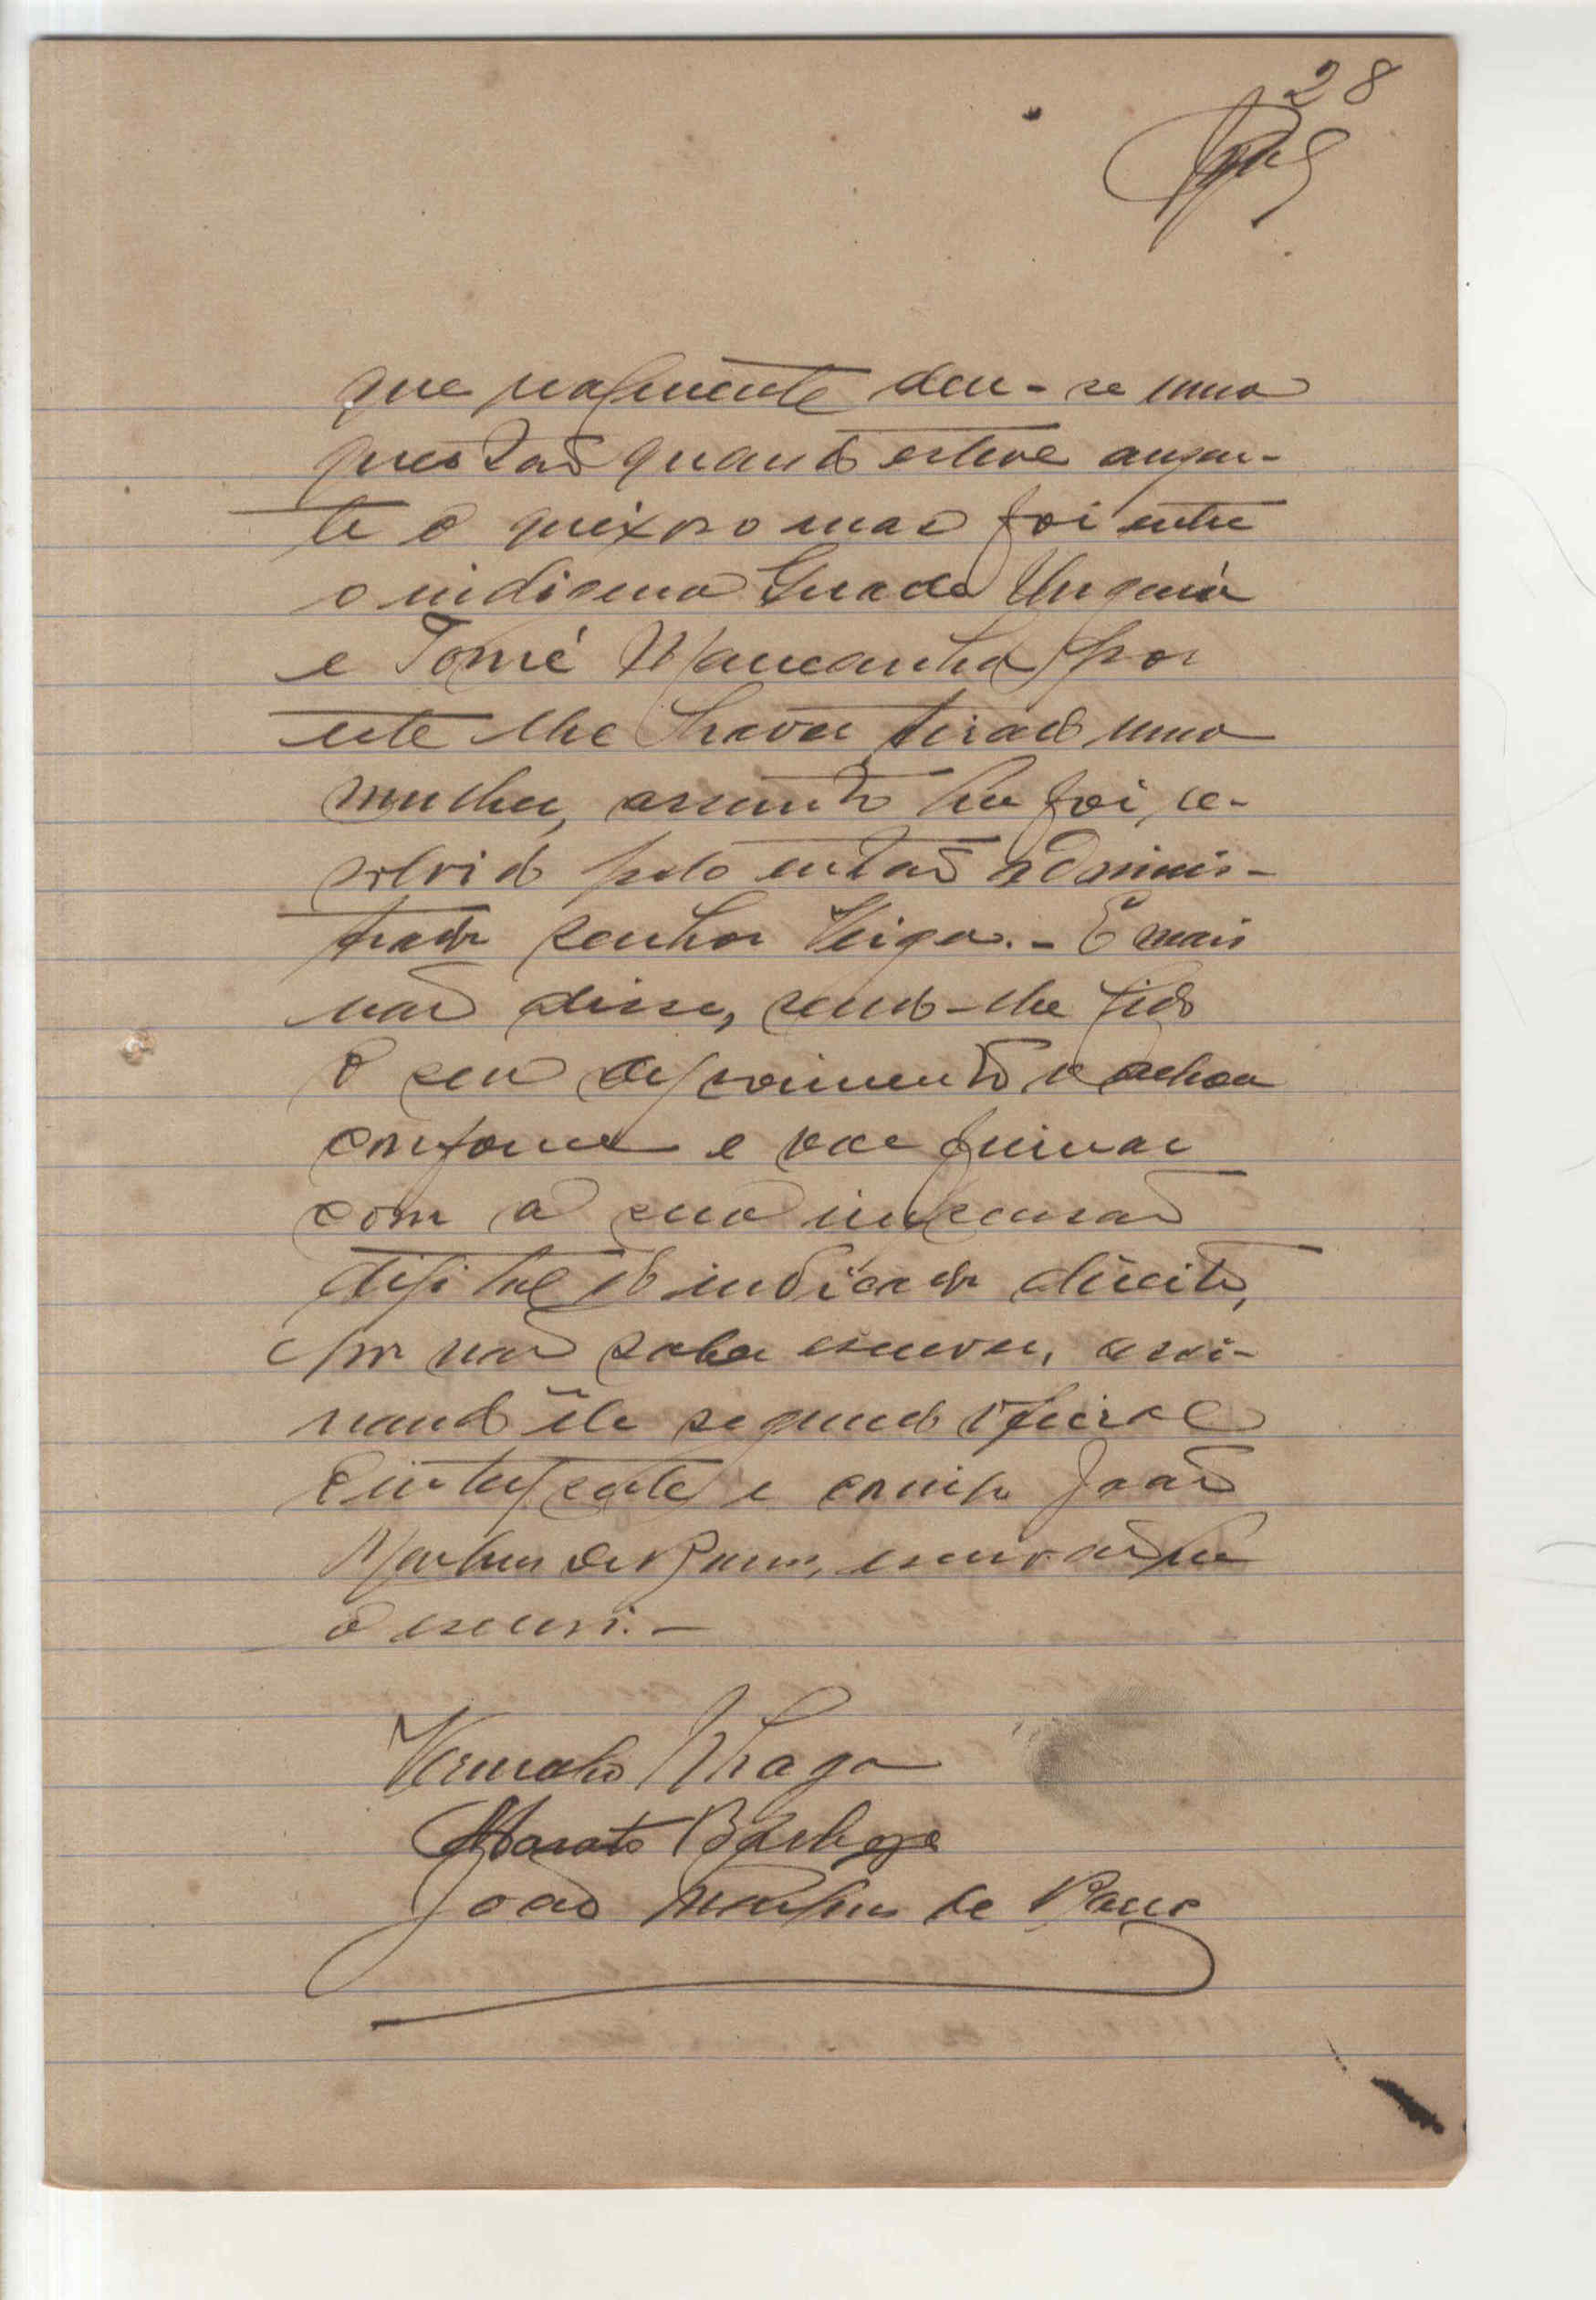 28
que realmente deu-se uma
questão quando esteve ausen-
te o queixoso mas foi entre
o indigena
e Tomé Mancanha por
este lhe haver tirado uma
mulher, assunto que foi re-
solvido pelo então adminis-
trador senhor Veiga. - E mais
não disse, sendo-lhe lido
o seu depoimento o achou
conforme e vae firmar
com a sua impressão
digital do indicador direito,
por não saber escrever, assi-
nando êle segundo oficial
e interprete e comigo João
Martins de escrivão que
o escrevi. -
Barboza
João Martins de